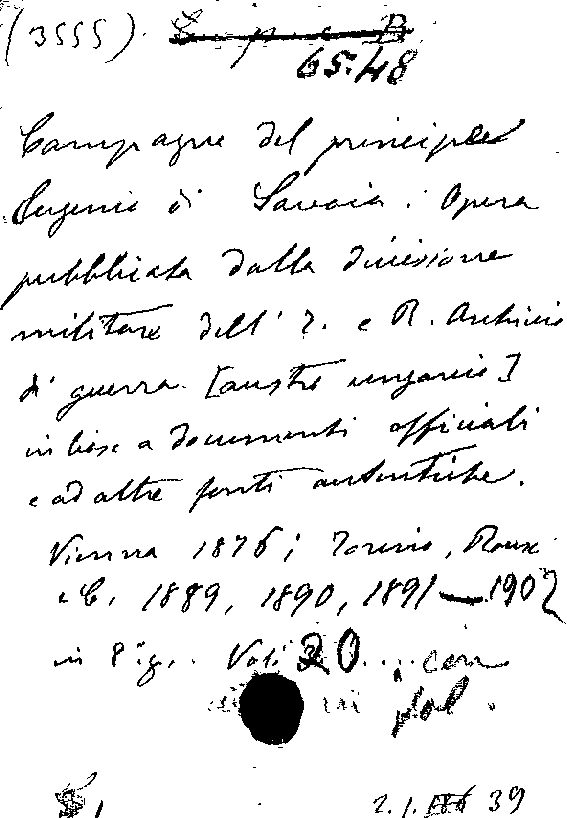 (3555).
65.48
Campagne del principe
Eugenio di Savoia. Opera
pubblicata dalla divisione
militare dell' I. e R. Archivio
di guerra [austro ungarico]
in base a documenti officiali
e ad altre fonti autentiche.
Vienna 1876; Torino, Roux
e C. 1889, 1890, 1891—1902
in 8° g. Vol. 20 .... con
tal.
39